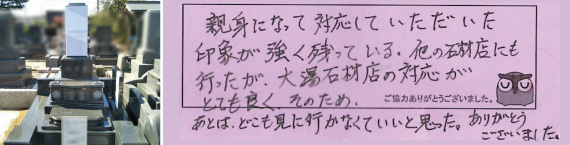 親身になって対応していただいた
印象が強く残っている。他の石材店にも
行ったが、大湯石材店の対応が
とても良く、そのため、
ご協力ありがとうございました。
あとは、どこも見に行かなくていいと思った。ありがとう
ございました。